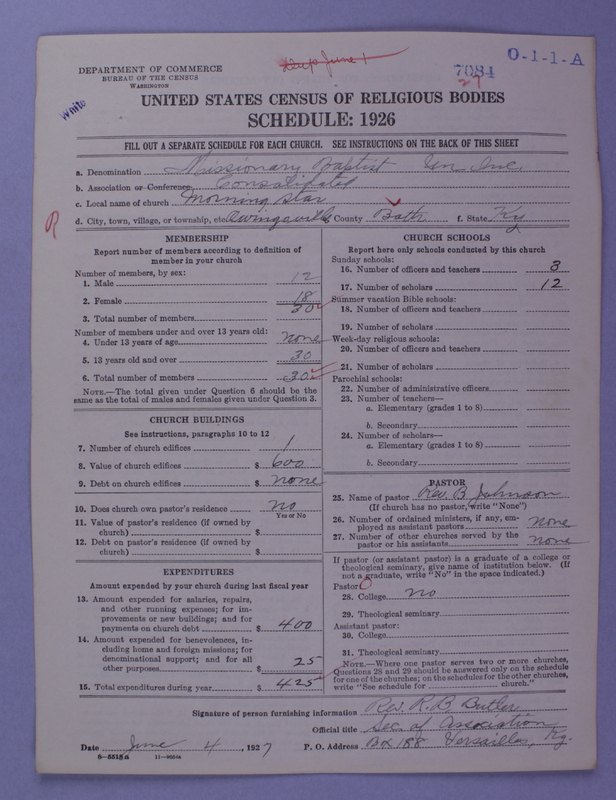 DEPARTMENT OF COMMERCE
BUREAU OF THE CENSUS
WASHINGTON
June 1
7084
27
O-1-1-A
White
UNITED STATES CENSUS OF RELIGIOUS BODIES
SCHEDULE: 1926
FILL OUT A SEPARATE SCHEDULE FOR EACH CHURCH. SEE INSTRUCTIONS ON THE BACK OF THIS SHEET
a. Denomination Missionary Baptist
b. Association or Conference Consolidated
c. Local name of church Morning Star
d. City, town, village, or township, etc. Owingsville e. County Bath f. State Ky
MEMBERSHIP
Report number of members according to definition of
member in your church
Number of members, by sex:
1. Male 12
2. Female 18
3. Total number of members 30
Number of members under and over 13 years old:
4. Under 13 years of age none
5. 13 years old and over 30
6. Total number of members 30
NOTE.—The total given under Question 6 should be the
same as the total of males and females given under Question 3.
CHURCH BUILDINGS
See instructions, paragraphs 10 to 12
7. Number of church edifices 1
8. Value of church edifices $ 600
9. Debt on church edifices $ none
10. Does church own pastor's residence no
Yes or No
11. Value of pastor's residence (if owned by
church) $
12. Debt on pastor's residence (if owned by
church) $
EXPENDITURES
Amount expended by your church during last fiscal year
13. Amount expended for salaries, repairs,
and other running expenses; for im-
provements or new buildings; and for
payments on church debt $ 400
14. Amount expended for benevolences, in-
cluding home and foreign missions; for
denominational support; and for all
other purposes $ 25
15. Total expenditures during year $ 425
CHURCH SCHOOLS
Report here only schools conducted by this church
Sunday schools:
16. Number of officers and teachers 3
17. Number of scholars 12
Summer vacation Bible schools:
18. Number of officers and teachers
19. Number of scholars
Week-day religious schools:
20. Number of officers and teachers
21. Number of scholars
Parochial schools:
22. Number of administrative officers
23. Number of teachers—
a. Elementary (grades 1 to 8)
b. Secondary
24. Number of scholars—
a. Elementary (grades 1 to 8)
b. Secondary
PASTOR
25. Name of pastor Rev. B Johnson
(If church has no pastor, write "None")
26. Number of ordained ministers, if any, em-
ployed as assistant pastors none
27. Number of other churches served by the
pastor or his assistants none
If pastor (or assistant pastor) is a graduate of a college or
theological seminary, give name of institution below. (If
not a graduate, write "No" in the space indicated.)
Pastor:
28. College no
29. Theological seminary
Assistant pastor:
30. College
31. Theological seminary
NOTE.—Where one pastor serves two or more churches,
Questions 28 and 29 should be answered only on the schedule
for one of the churches; on the schedules for the other churches,
write "See schedule for church."
Signature of person furnishing information Rev. R. B Butler
Official title Sec. of Association
Date June 4, 1927 P. O. Address Box 188 Versailles, Ky.
8-5518a 11-9084a